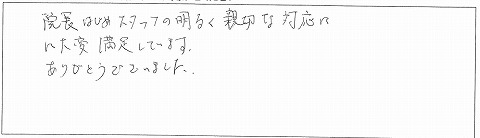 院長はじめスタッフの明るく親切な対応に
に大変満足しています.
ありがとうございました.